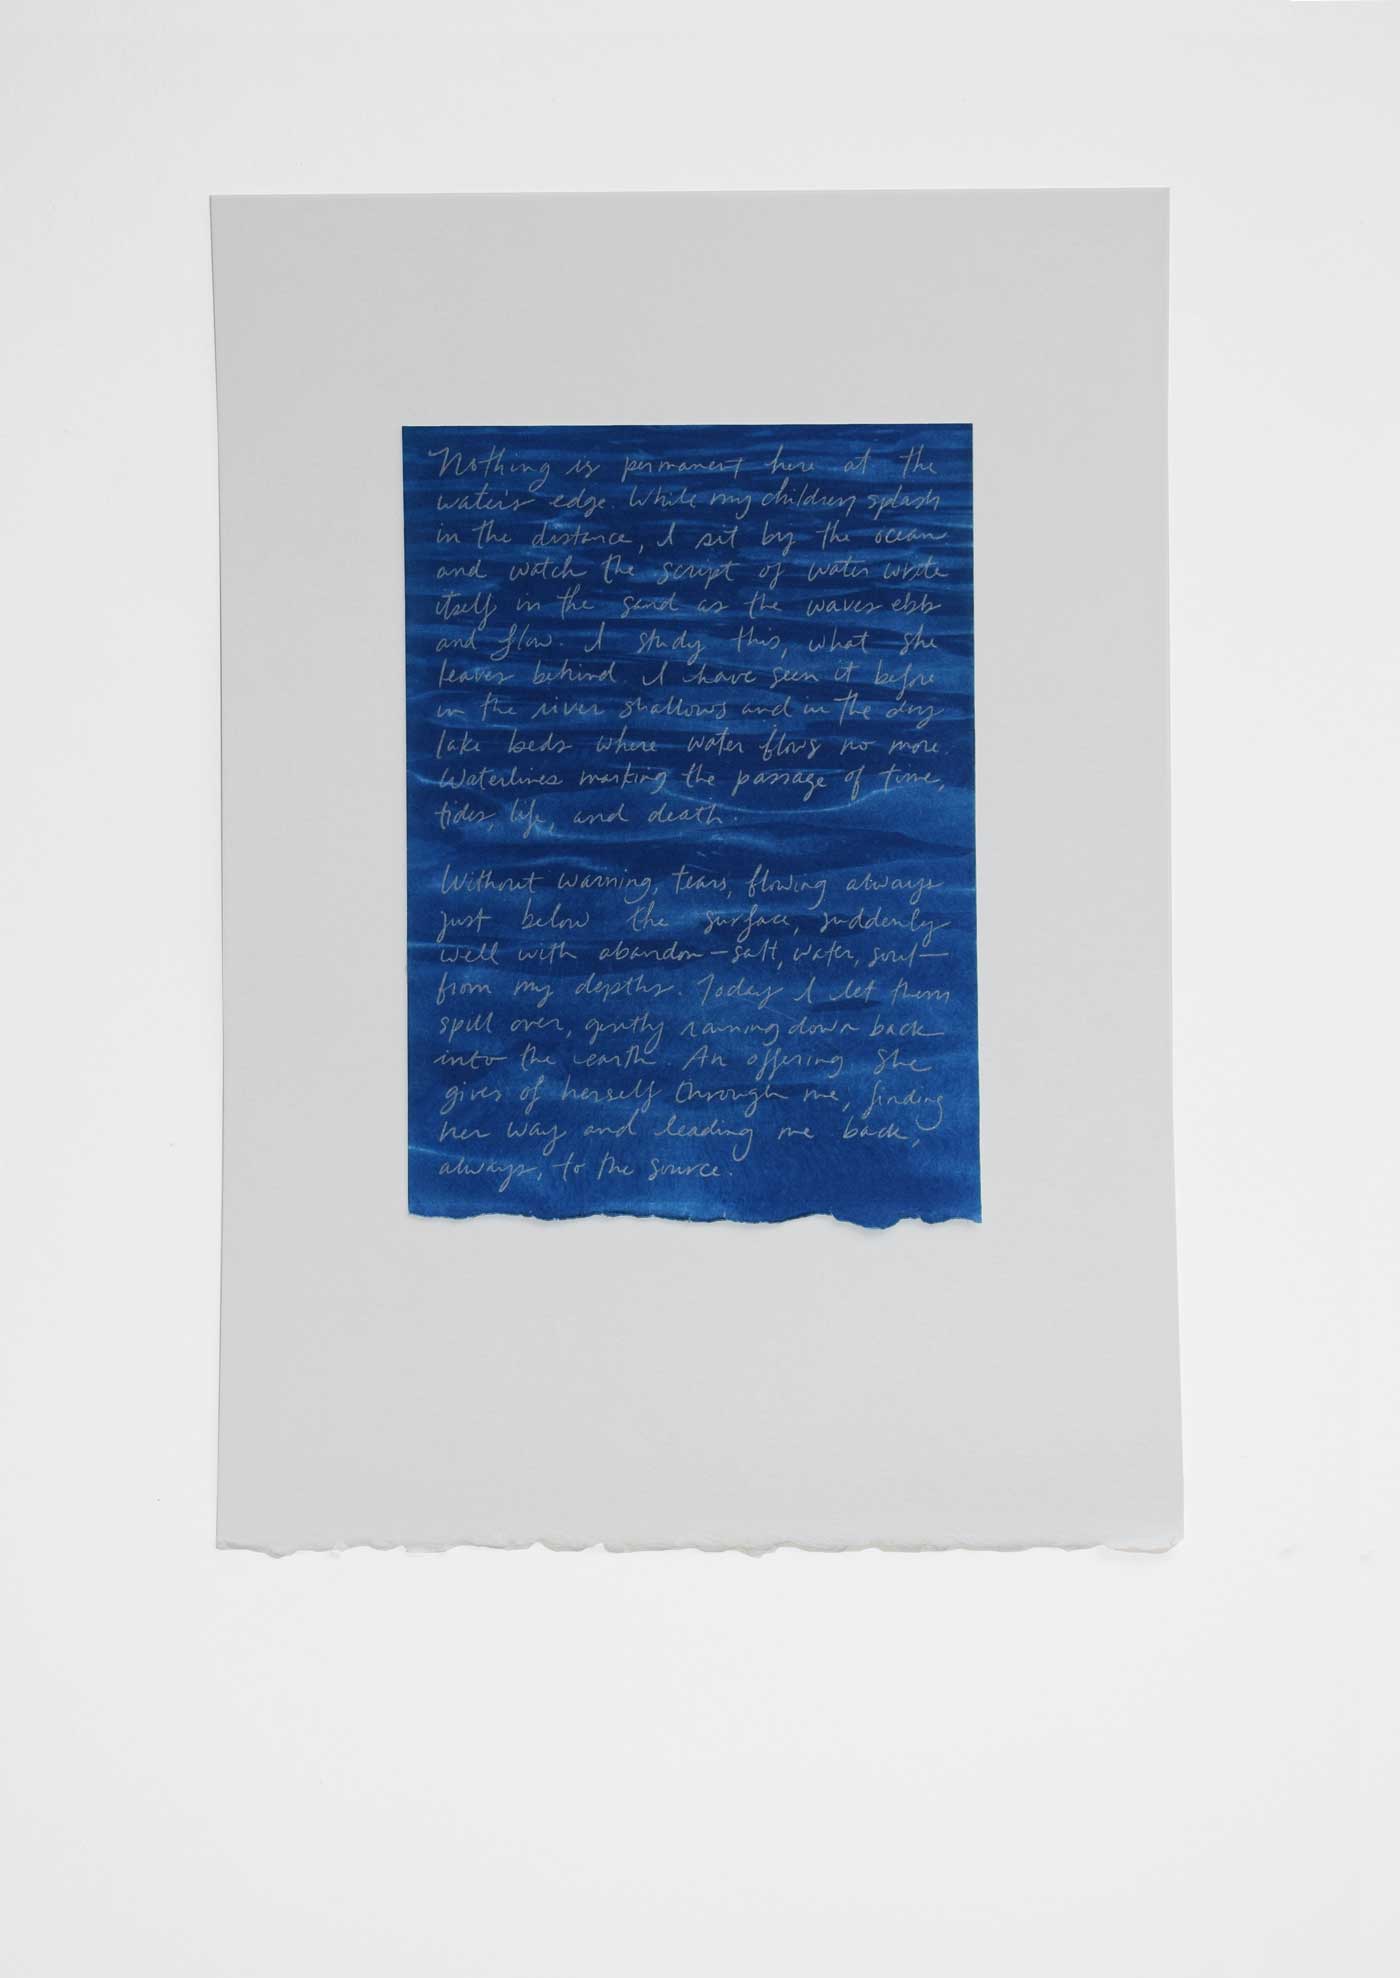 Nothing is permanent here at the
water's edge. While my children splash
in the distance, I sit by the ocean
and watch the script of water write
itself in the sand as the waves ebb
and flow. I study this, what she
leaves behind. I have seen it before
in the river shallows and in the dry
lake beds where water flows no more.
Waterlines marking the passage of time,
tides, life, and death.

Without warning, tears, flowing always
just below the surface, suddenly
well with abandon—salt, water, soul—
from my depths. Today I let them
spill over, gently raining down back
into the earth. An offering she
gives of herself through me, finding
her way and leading me back,
always, to the source.